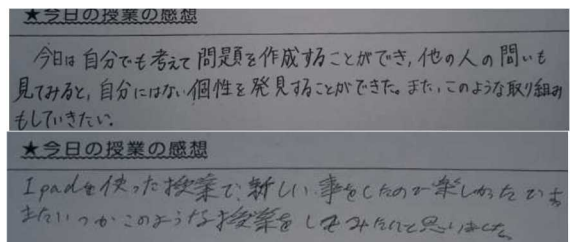 ★今日の授業の感想
今日は自分でも考えて問題を作成することができ、他の人の問いも
見てみると、自分にはない個性を発見することができた。また、このような取り組み
もしていきたい。
★今日の授業の感想
Ipadを使った授業で、新しい事をしたので楽しかったです
またいつかこのような授業をしてみたいと思いました。